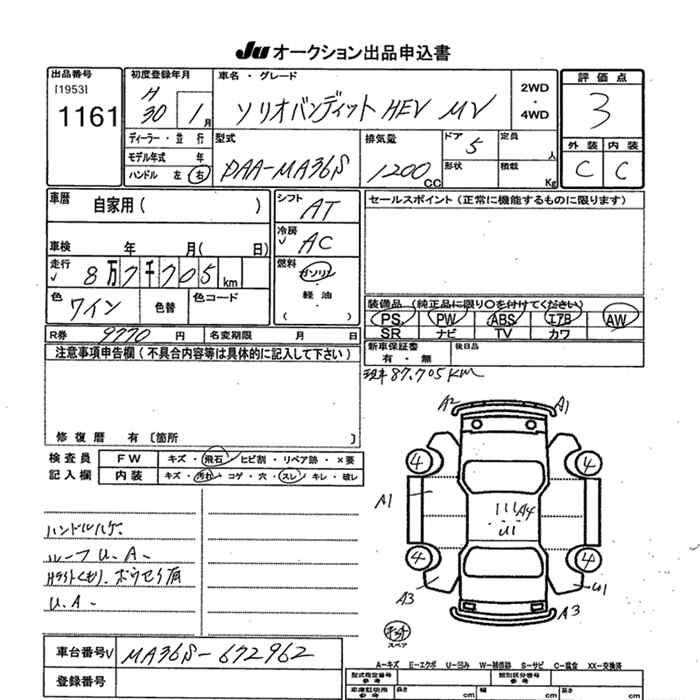 Ju オークション出品申込書
出品番号
[1953]
1161
初度登録年月
H
30 1月
車名・グレード
ソリオバンディット HEV MV
2WD
・
4WD
評価点
3
外装 内装
C C
ディーラー・並行
モデル年式 年
ハンドル 左 右
型式
DAA-MA36S
排気量
1200 CC
ドア 5
形状
定員 人
積載 Kg
車歴
自家用( )
車検 年 月( 日)
走行
8万7千705km
色
ワイン
色替
色コード
シフト
AT
冷房
AC
燃料
ガソリン
・
軽油
( )
セールスポイント(正常に機能するものに限ります)
装備品(純正品に限り〇を付けてください)
PS PW ABS エアB AW
SR ナビ TV カワ
R券 9770 円
名変期限 月 日
新車保証書
有・無
後日品
注意事項申告欄(不具合内容等は具体的に記入して下さい)
現車87.705KM
修復歴 有〔箇所 〕
検査員
記入欄
FW キズ・飛石・ヒビ割・リペア跡・×要
内装 キズ・汚れ・コゲ・穴・スレ・キレ・破レ
A2 A1
4 4
A1
A4
4 4
A3 U1
A3
スペア
ハンドルハゲ.
ルーフU.A.
U.A.
車台番号 MA36S-672962
登録番号
A-キズ E-エクボ U-凹み W-補修跡 S-サビ C-腐食 XX-交換済
型式指定番号
参考
類別区分番号
参考
車庫証明用
参考
長さ cm
幅 cm
高さ cm